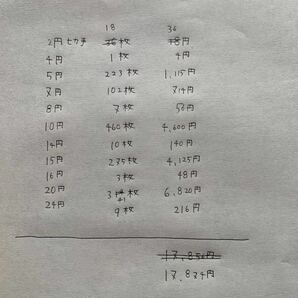 18 36
2円 36枚 18円
4円 1枚 4円
5円 223枚 1,115円
7円 102枚 714円
8円 7枚 56円
10円 460枚 4,600円
14円 10枚 140円
15円 275枚 4,125円
16円 3枚 48円
20円 3 枚 6,820円
41
24円 9枚 216円
17,856円
17,874円